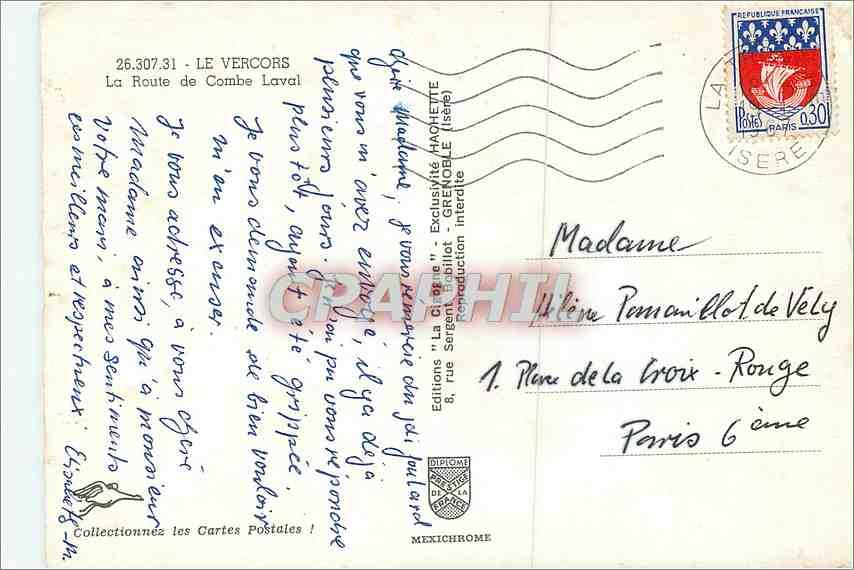 26.307.31 - LE VERCORS
La Route de Combe Laval
chère Madame, je vous remercie du joli foulard
que vous m'avez envoyé, il y a déjà
plusieurs jours. Je n'ai pu vous répondre
plus tôt, ayant été grippée.
Je vous demande de bien vouloir
m'en excuser.
Je vous adresse, à vous chère
Madame ainsi qu'à monsieur
votre mari, à mes sentiments
les meilleurs et respectueux.
Collectionnez les Cartes Postales !
Editions "La Cigogne" - Exclusivité HACHETTE
8, rue Sergent Bobillot - GRENOBLE (Isère)
Reproduction interdite
DIPLOME
PRESTIGE
DE LA
FRANCE
MEXICHROME
CPAPHIL
REPUBLIQUE FRANÇAISE
Postes 0,30
PARIS
LA
ISERE
Madame
Hélène Pomaillot de Vély
1. Place de la Croix-Rouge
Paris 6ème